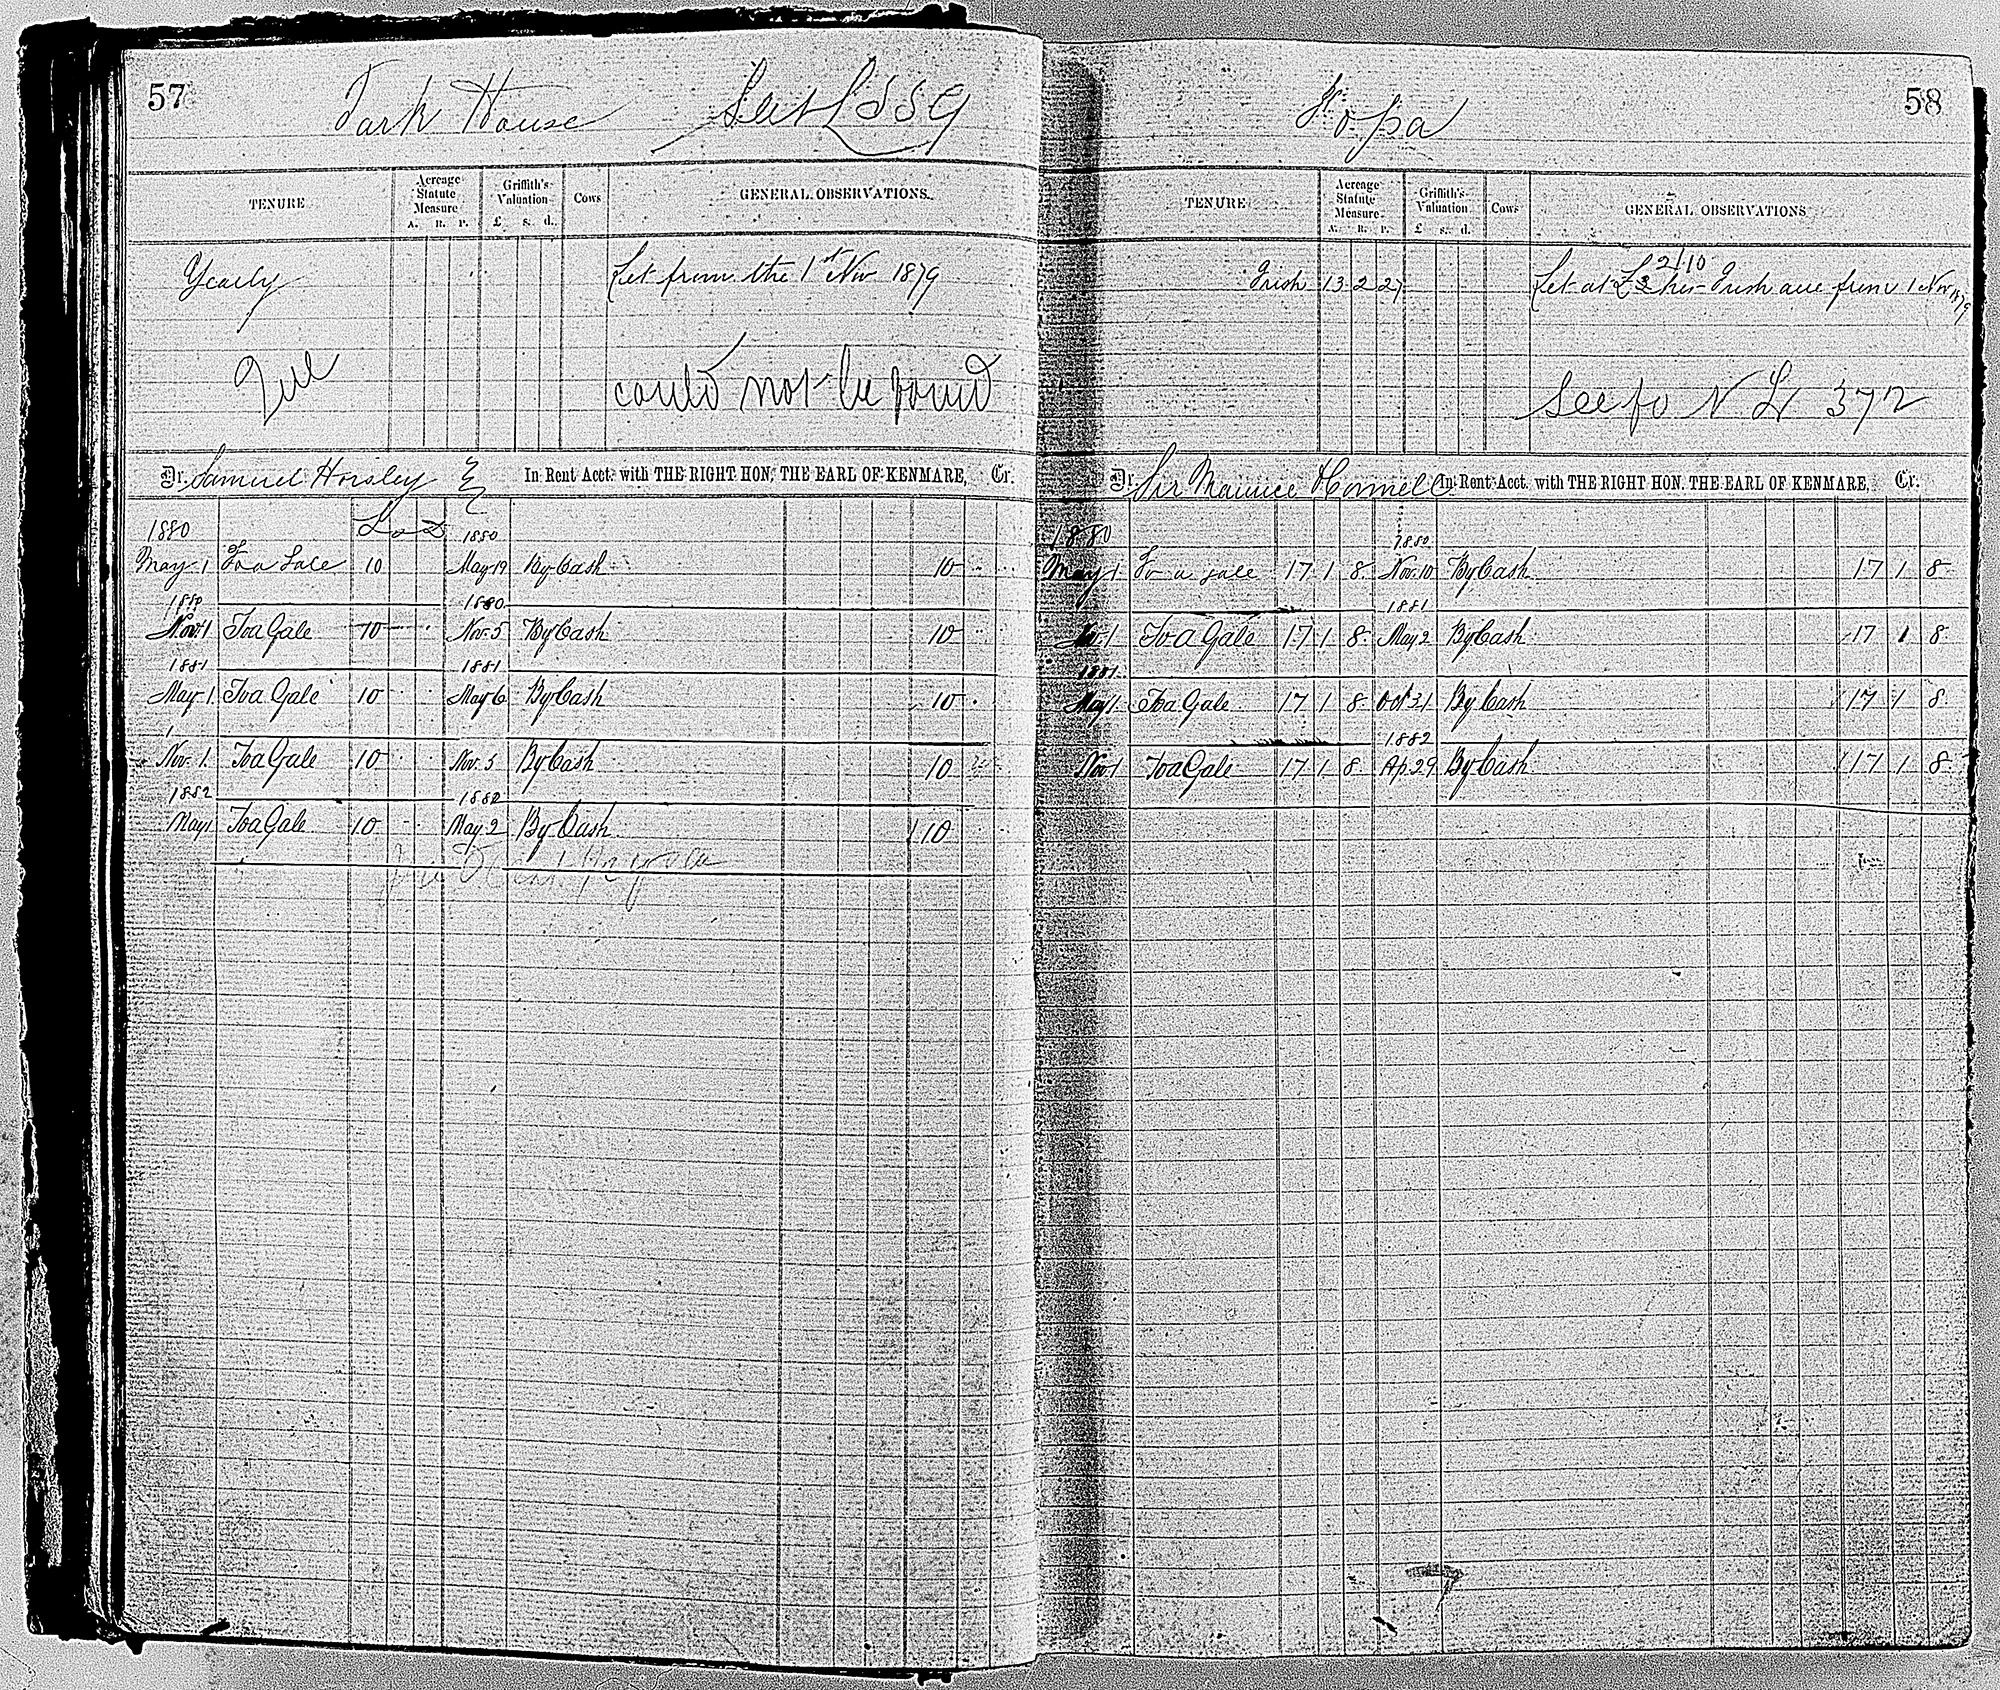 57
Park House
TENURE
Acreage Statute Measure
A. R. P.
Griffith's Valuation
£ s. d.
Cows
GENERAL OBSERVATIONS.
Yearly
Let from the 1st Nov 1879
could not be found
Dr. Samuel Horsley In Rent Acct. with THE RIGHT HON. THE EARL OF KENMARE, Cr.
1880 1880
May 1 To a Gale 10 May 19 By Cash 10
1880 1880
Nov 1 To a Gale 10 Nov. 5 By Cash 10
1881 1881
May 1. To a Gale 10 May 6 By Cash 10
Nov. 1. To a Gale 10 Nov. 5 By Cash 10
1882 1882
May 1 To a Gale 10 May 2 By Cash 10
58
TENURE
Acreage Statute Measure
A. R. P.
Griffith's Valuation
£ s. d.
Cows
GENERAL OBSERVATIONS
2/10
Irish 13 2 27 Let at £3 per Irish acre from 1 Nov 1879
See fo N L 372
Dr. Sir Maurice In Rent Acct. with THE RIGHT HON. THE EARL OF KENMARE, Cr.
1880 1880
May 1 To a Gale 17 1 8 Nov. 10 By Cash 17 1 8
1881
Nov 1 To a Gale 17 1 8 May 2 By Cash 17 1 8
1881
May 1 To a Gale 17 1 8 Oct 31 By Cash 17 1 8
1882
Nov 1 To a Gale 17 1 8 Ap 29 By Cash 17 1 8